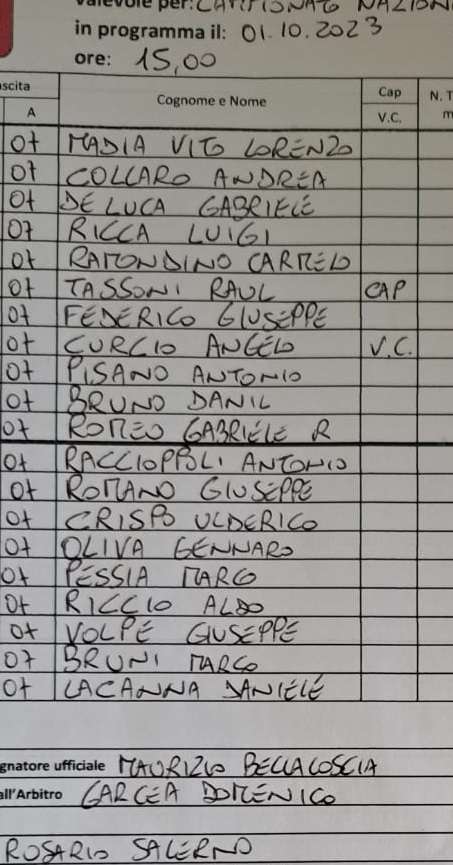 valevole per: CAMPIONATO NAZION
in programma il: 01.10.2023
ore: 15,00
ascita Cognome e Nome Cap N. T
A V.C. m
07 MADIA VITO LORENZO
07 COLLARO ANDREA
07 DE LUCA GABRIELE
07 RICCA LUIGI
07 RAMONDINO CARMELO
07 TASSONI RAUL CAP
07 FEDERICO GIUSEPPE
07 CURCIO ANGELO V.C.
07 PISANO ANTONIO
07 BRUNO DANIL
07 ROMEO GABRIELE R
07 RACCIOPPOLI ANTONIO
07 ROMANO GIUSEPPE
07 CRISPO ULDERICO
07 OLIVA GENNARO
07 PESSIA MARCO
07 RICCIO ALDO
07 VOLPE GIUSEPPE
07 BRUNI MARCO
07 LACANNA DANIELE
gnatore ufficiale MAURIZIO BELLACOSCIA
all'Arbitro GARCEA DOMENICO
ROSARIO SALERNO